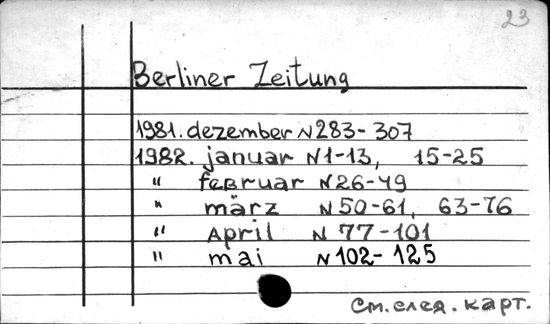 23
Berliner Zeitung
1981. dezember N 283-307
1982. januar N1-13, 15-25
" februar N 26-49
" märz N 50-61, 63-76
" April N 77-101
" mai N 102-125
См. след. карт.